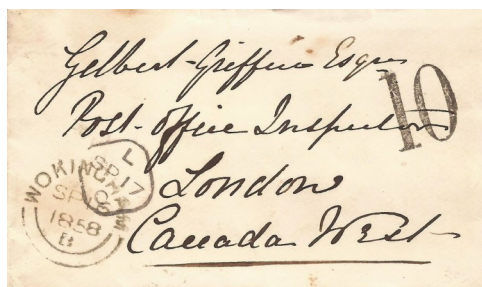 Gilbert Griffin Esqre
Post-Office Inspector
London
Canada West
10
L
SP 17
WOKINGHAM
SP
1858
B